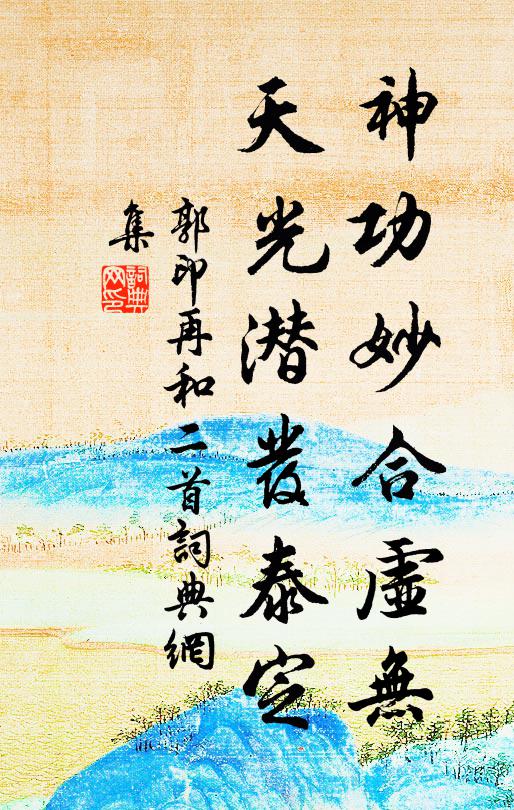 神功妙合虛無
天光潜發泰定
郭印再和二首詞典網
集
詞典网印